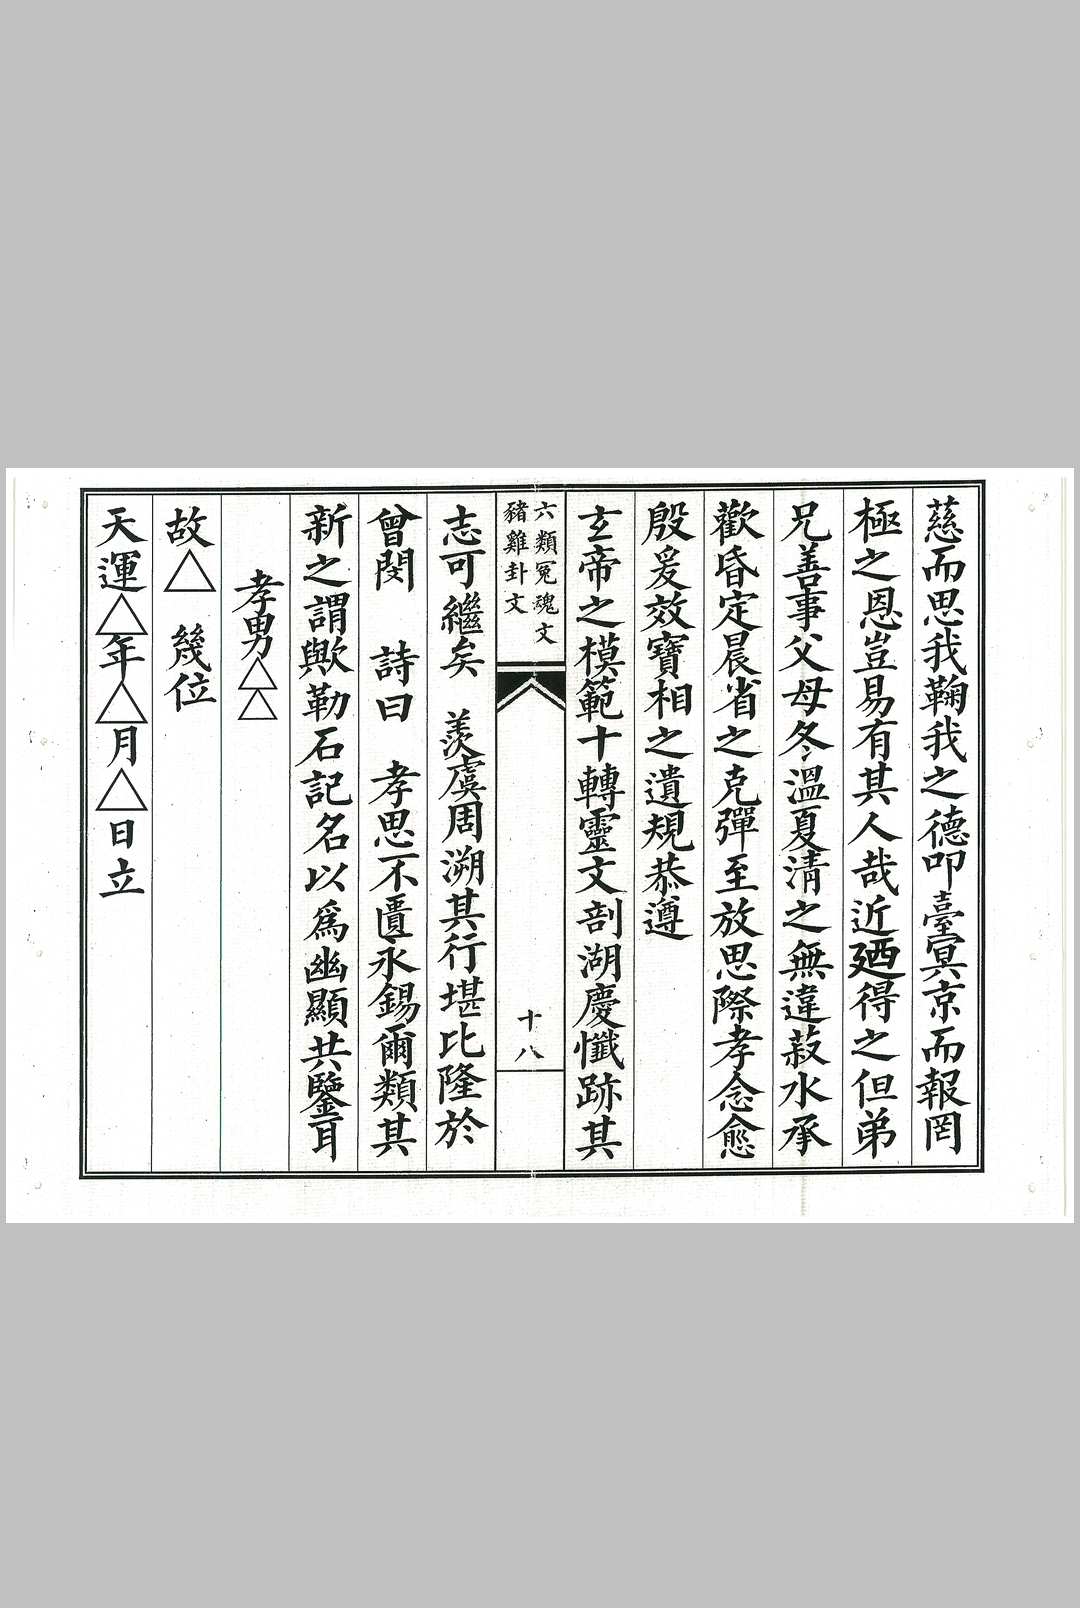 慈而思我鞠我之德叩臺冥京而報罔
極之恩豈易有其人哉近廼得之但弟
兄善事父母冬溫夏凊之無違菽水承
歡昏定晨省之克彈至放思際孝念愈
殷爰效寶相之遺規恭遵
玄帝之模範十轉靈文剖湖慶懺跡其
六類冤魂文
豬雞卦文
十八
志可繼矣 羨虞周溯其行堪比隆於
曾閔 詩曰 孝思不匱永錫爾類其
新之謂歟勒石記名以爲幽顯共鑒耳
孝男△△
故△ 幾位
天運△年△月△日立